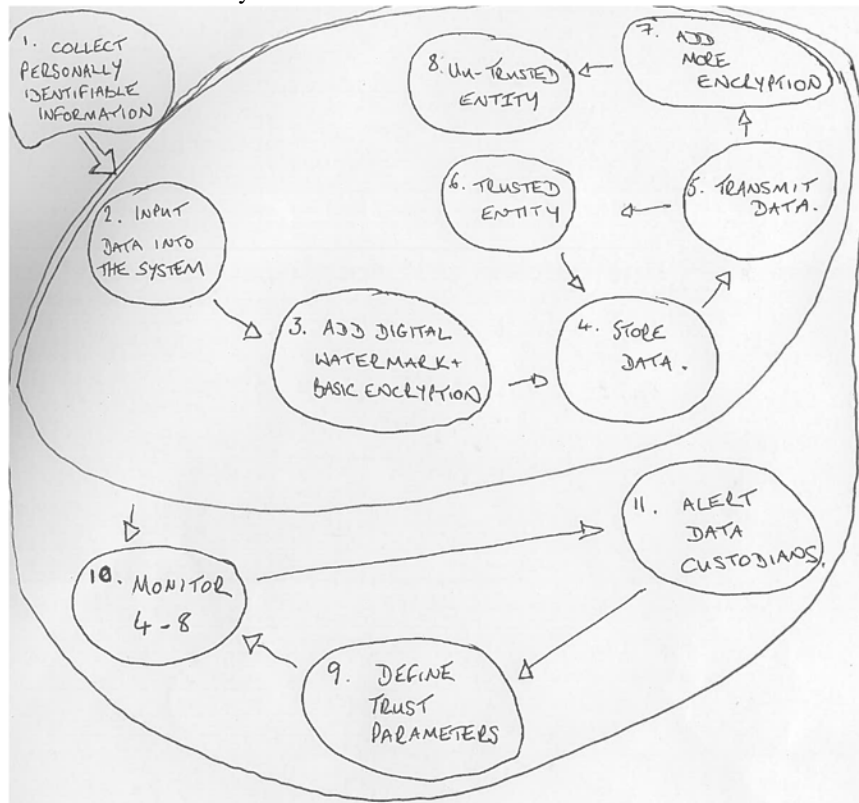 1. COLLECT
PERSONALLY
IDENTIFIABLE
INFORMATION
2. INPUT
DATA INTO
THE SYSTEM
3. ADD DIGITAL
WATERMARK+
BASIC ENCRYPTION
4. STORE
DATA.
5. TRANSMIT
DATA.
6. TRUSTED
ENTITY
7. ADD
MORE
ENCRYPTION
8. UN-TRUSTED
ENTITY
9. DEFINE
TRUST
PARAMETERS
10. MONITOR
4-8
11. ALERT
DATA
CUSTODIANS.